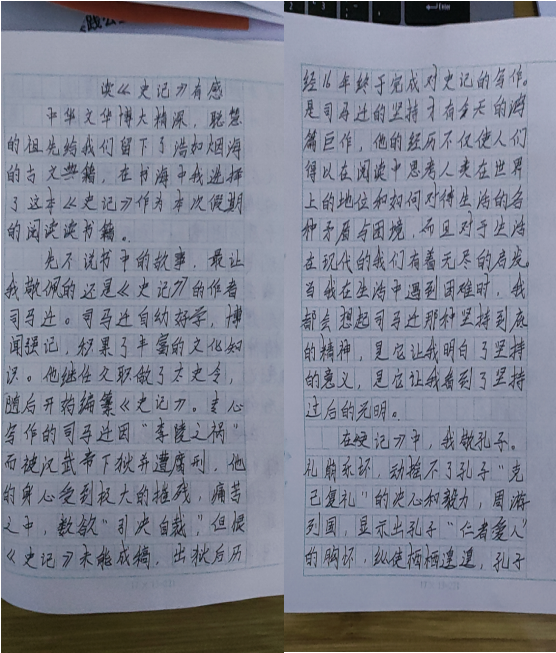 读《史记》有感
中华文华博大精深，聪慧
的祖先给我们留下了浩如烟海
的古文典籍，在书海中我选择
了这本《史记》作为本次假期
的阅读读书籍。
先不说书中的故事，最让
我敬佩的还是《史记》的作者
司马迁。司马迁自幼好学，博
闻强记，积累了丰富的文化知
识。他继任父职做了太史令，
随后开始编纂《史记》。专心
写作的司马迁因“李陵之祸”
而被汉武帝下狱并遭腐刑，他
的身心受到极大的摧残，痛苦
之中，数欲“引决自裁”，但恨
《史记》未能成稿，出狱后历
经16年终于完成对史记的写作。
是司马迁的坚持才有今天的鸿
篇巨作，他的经历不仅使人们
得以在阅读中思考人类在世界
上的地位和如何对待生活的各
种矛盾与困境，而且对于生活
在现代的我们有着无尽的启发。
当我在生活中遇到困难时，我
都会想起司马迁那种坚持到底
的精神，是它让我明白了坚持
的意义，是它让我看到了坚持
过后的光明。
在史记》中，我敬孔子。
礼崩乐坏，动摇不了孔子“克
己复礼”的决心和毅力，周游
列国，显示出孔子“仁者爱人”
的胸怀，纵使栖栖遑遑，孔子